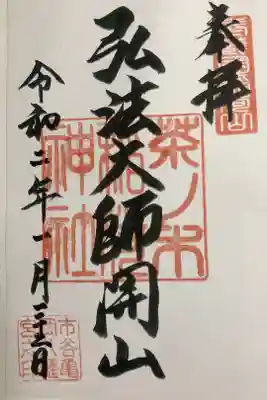 奉拝
弘法大師開山
茶ノ木
稲荷
神社
令和二年一月二十三日
市谷亀
岡八幡
宮之印